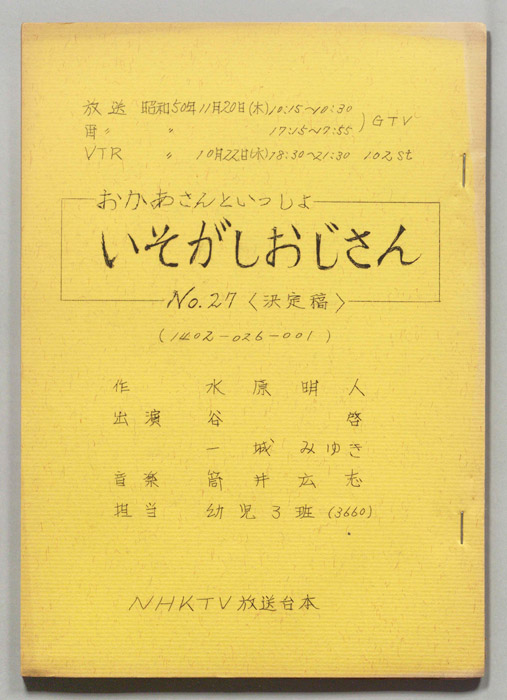 放送 昭和50年11月20日(木)10:15~10:30
再〃 〃 17:15~17:55 )GTV
VTR 〃 10月22日(水)18:30~21:30 102st
おかあさんといっしょ
いそがしおじさん
No.27〈決定稿〉
(1402-026-001)
作 水原明人
出演 谷 啓
一城みゆき
音楽 筒井広志
担当 幼児3班(3660)
NHKTV放送台本